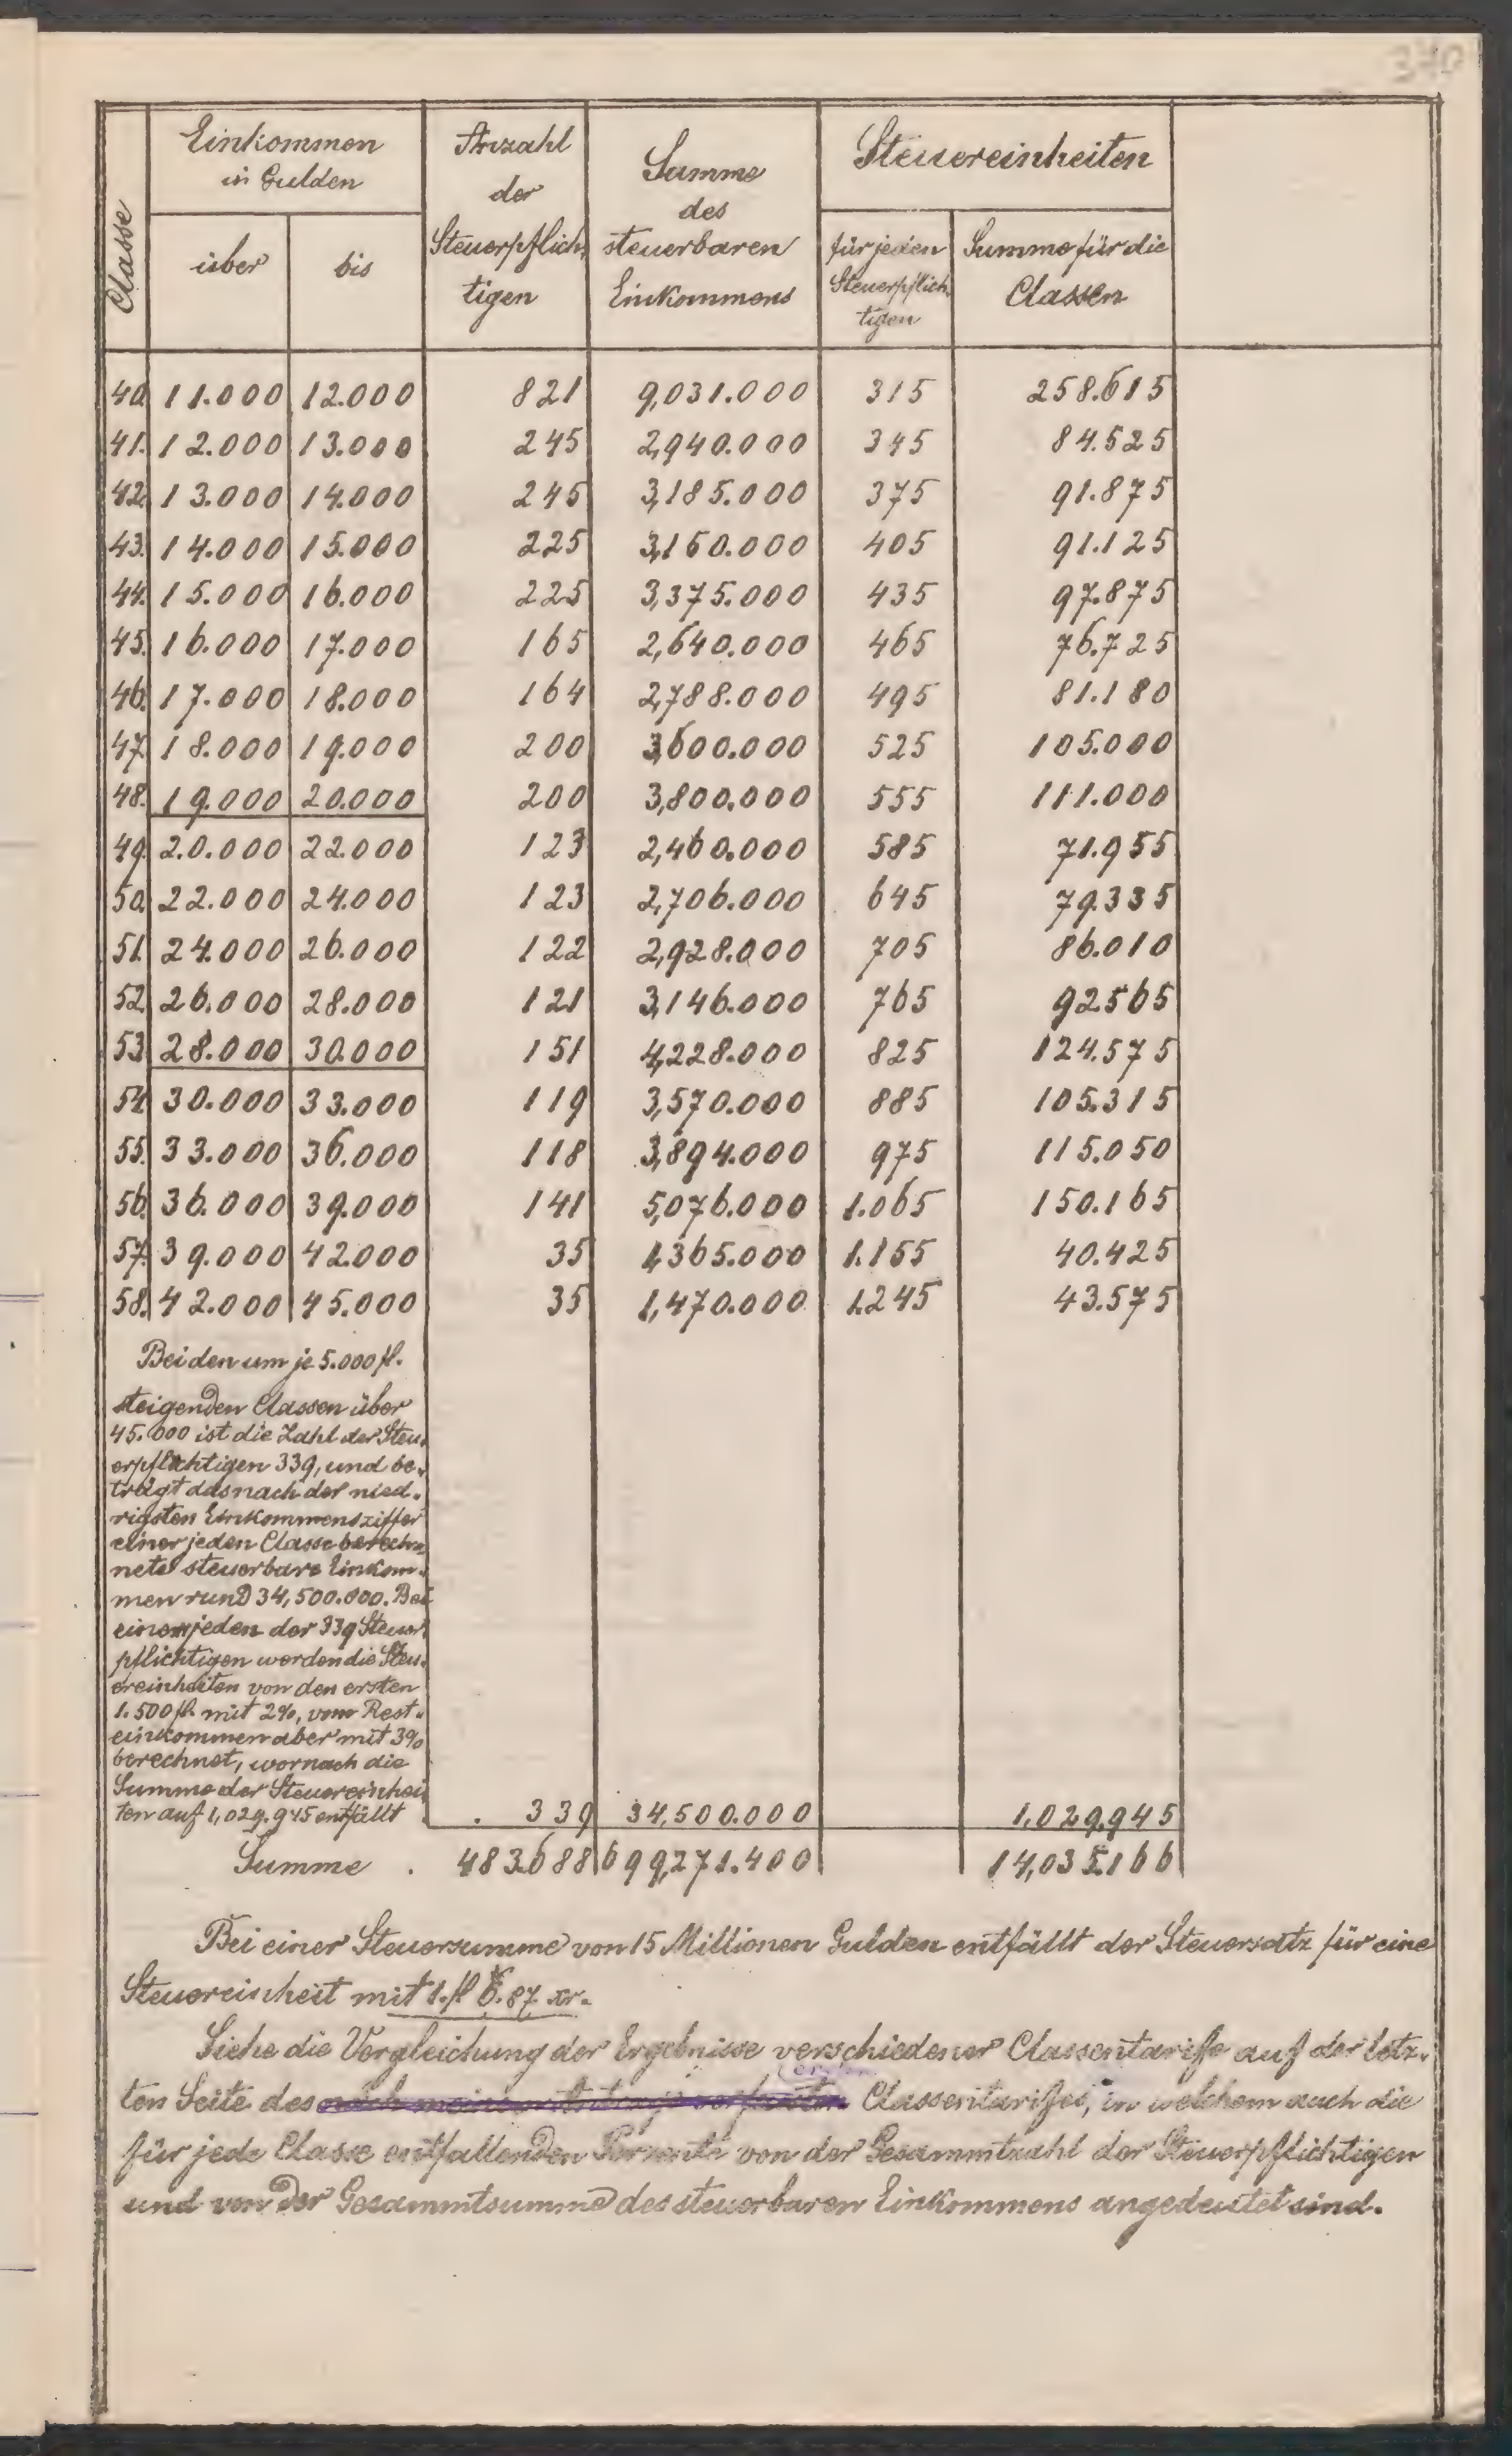 370
Classe
Einkommen
in Gulden
über
bis
Anzahl
der
Steuerpflich-
tigen
Summe
des
steuerbaren
Einkommens
Steuereinheiten
für jeden
Steuerpflich-
tigen
Summe für die
Classen
40. 11.000 12.000 821 9,031.000 315 258.615
41. 12.000 13.000 245 2,940.000 345 84.525
42. 13.000 14.000 245 3,185.000 375 91.875
43. 14.000 15.000 225 3,150.000 405 91.125
44. 15.000 16.000 225 3,375.000 435 97.875
45. 16.000 17.000 165 2,640.000 465 76.725
46. 17.000 18.000 164 2,788.000 495 81.180
47. 18.000 19.000 200 3,600.000 525 105.000
48. 19.000 20.000 200 3,800.000 555 111.000
49. 20.000 22.000 123 2,460.000 585 71.955
50. 22.000 24.000 123 2,706.000 645 79.335
51. 24.000 26.000 122 2,928.000 705 86.010
52. 26.000 28.000 121 3,146.000 765 92.565
53. 28.000 30.000 151 4,228.000 825 124.575
54. 30.000 33.000 119 3,570.000 885 105.315
55. 33.000 36.000 118 3,894.000 975 115.050
56. 36.000 39.000 141 5,076.000 1.065 150.165
57. 39.000 42.000 35 1,365.000 1.155 40.425
58. 42.000 45.000 35 1,470.000 1.245 43.575
Bei den um je 5.000 fl.
steigenden Classen über
45.000 ist die Zahl der Steu-
erpflichtigen 339, und be-
trägt das nach der nied-
rigsten Einkommensziffer
einer jeden Classe berech-
nete steuerbare Einkom-
men rund 34,500.000. Bei
einem jeden der 339 Steuer-
pflichtigen werden die Steu-
ereinheiten von den ersten
1.500 fl. mit 2%, vom Rest-
einkommen aber mit 3%
berechnet, wornach die
Summe der Steuereinhei-
ten auf 1,029.945 entfällt . . 339 34,500.000 1,029.945
Summe . 483.688 699,271.400 14,035.166
Bei einer Steuersumme von 15 Millionen Gulden entfällt der Steuersatz für eine
Steuereinheit mit 1. fl 6.87 xr.
Siehe die Vergleichung der Ergebnisse verschiedener Classentarife auf der letz-
ten Seite des nach meinem Antrage verfassten Classentarifes, in welchem auch die
für jede Classe entfallenden Percente von der Gesammtzahl der Steuerpflichtigen
und von der Gesammtsumme des steuerbaren Einkommens angedeutet sind.